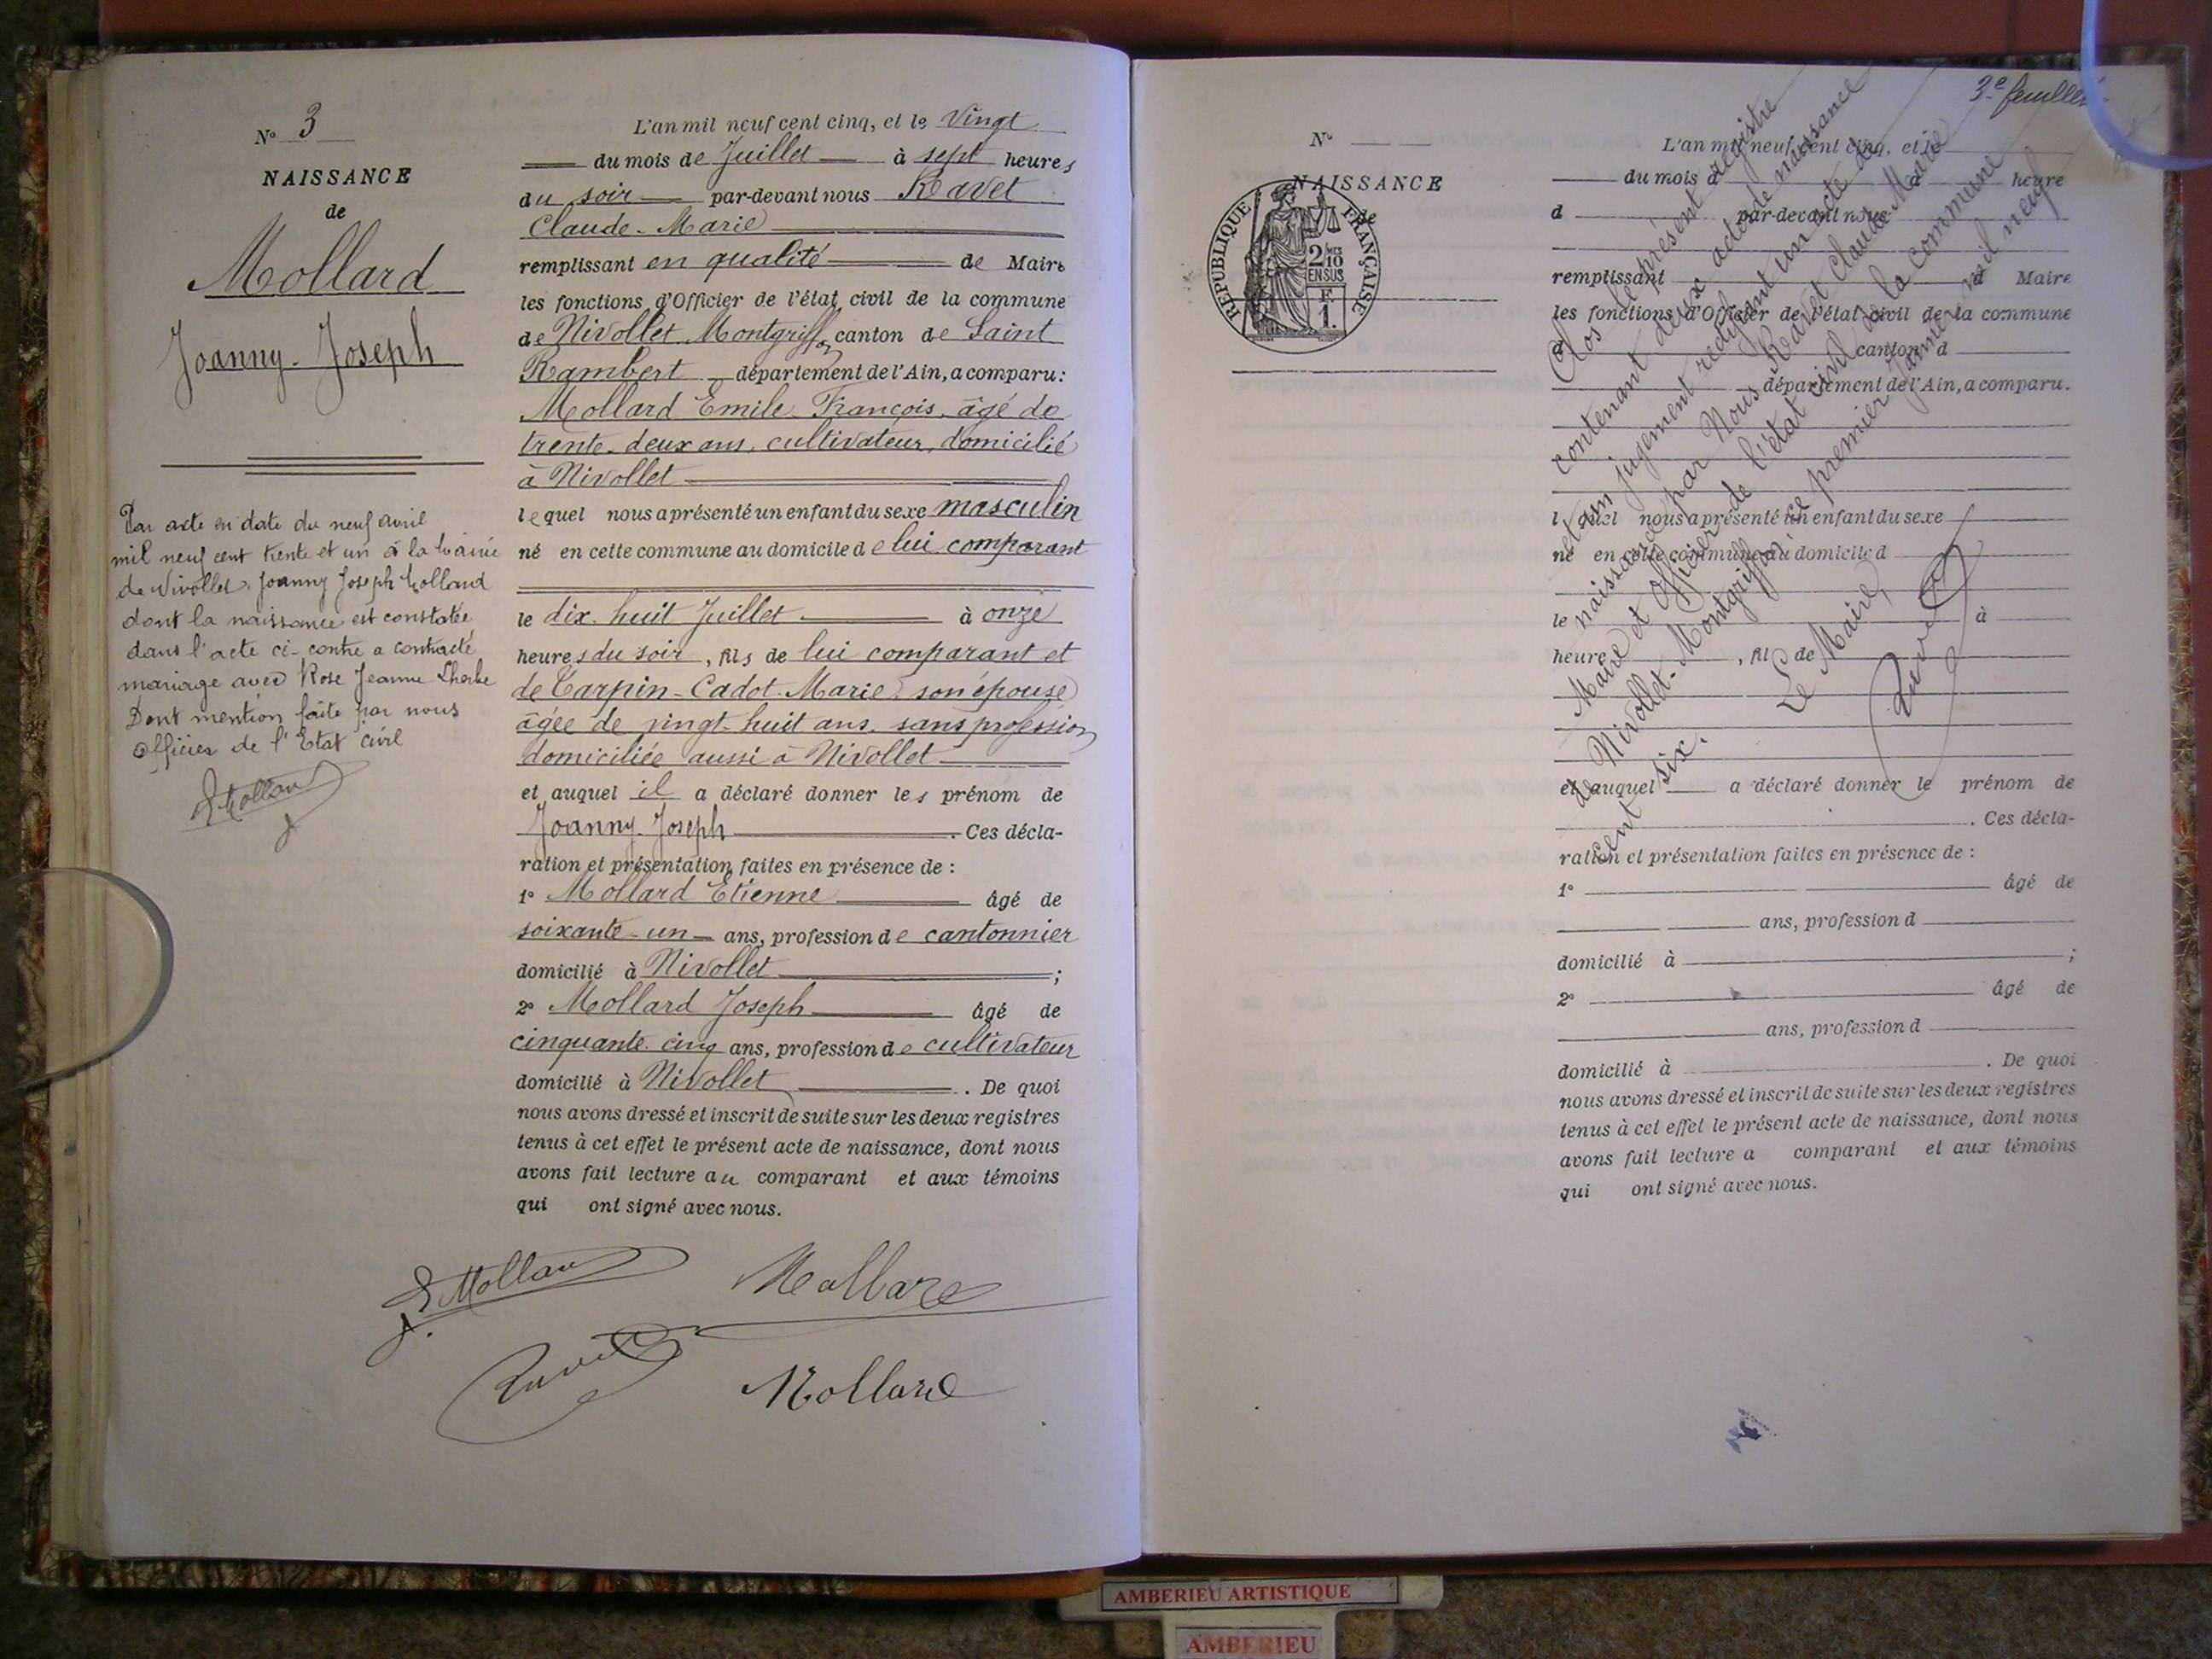 N° 3
NAISSANCE
de
Mollard
Joanny-Joseph
Par acte en date du neuf avril
mil neuf cent trente et un à la Mairie
de Nivollet, Joanny Joseph Mollard
dont la naissance est constatée
dans l'acte ci-contre a contracté
mariage avec Rose Jeanne
Dont mention faite par nous
Officier de l'Etat civil
E Mollard
L'an mil neuf cent cinq, et le Vingt
du mois de Juillet à sept heures
du soir par-devant nous Ravet
Claude-Marie
remplissant en qualité de Maire
les fonctions d'Officier de l'état civil de la commune
de Nivollet Montgriffon canton de Saint
Rambert département de l'Ain, a comparu:
Mollard Emile François, âgé de
trente-deux ans, cultivateur, domicilié
à Nivollet
lequel nous a présenté un enfant du sexe masculin
né en cette commune au domicile de lui comparant
le dix-huit Juillet à onze
heures du soir, fils de lui comparant et
de Carpin-Cadot Marie, son épouse
âgée de vingt-huit ans, sans profession
domiciliée aussi à Nivollet
et auquel il a déclaré donner les prénom de
Joanny-Joseph. Ces décla-
ration et présentation faites en présence de :
1° Mollard Etienne âgé de
soixante-un ans, profession de cantonnier
domicilié à Nivollet ;
2° Mollard Joseph âgé de
cinquante-cinq ans, profession de cultivateur
domicilié à Nivollet. De quoi
nous avons dressé et inscrit de suite sur les deux registres
tenus à cet effet le présent acte de naissance, dont nous
avons fait lecture au comparant et aux témoins
qui ont signé avec nous.
E Mollard Mollard
Ravet Mollard
3e feuillet
N°
NAISSANCE
de
REPUBLIQUE FRANÇAISE
2/10 MES
EN SUS
F
1.
L'an mil neuf cent cinq, et le
du mois d à heure
d par-devant nous
remplissant d Maire
les fonctions d'Officier de l'état civil de la commune
d canton d
département de l'Ain, a comparu.
l quel nous a présenté un enfant du sexe
né en cette commune au domicile d
le à
heure , fil de
et auquel a déclaré donner le prénom de
. Ces décla-
ration et présentation faites en présence de :
1° âgé de
ans, profession d
domicilié à ;
2° âgé de
ans, profession d
domicilié à . De quoi
nous avons dressé et inscrit de suite sur les deux registres
tenus à cet effet le présent acte de naissance, dont nous
avons fait lecture a comparant et aux témoins
qui ont signé avec nous.
Clos le présent registre
contenant deux actes de naissance
et un jugement rectifiant un acte de
naissance par Nous Ravet Claude Marie
Maire et Officier de l'état civil de la commune
de Nivollet-Montgriffon, ce premier Janvier mil neuf
cent six.
Le Maire,
Ravet
AMBERIEU ARTISTIQUE
AMBERIEU